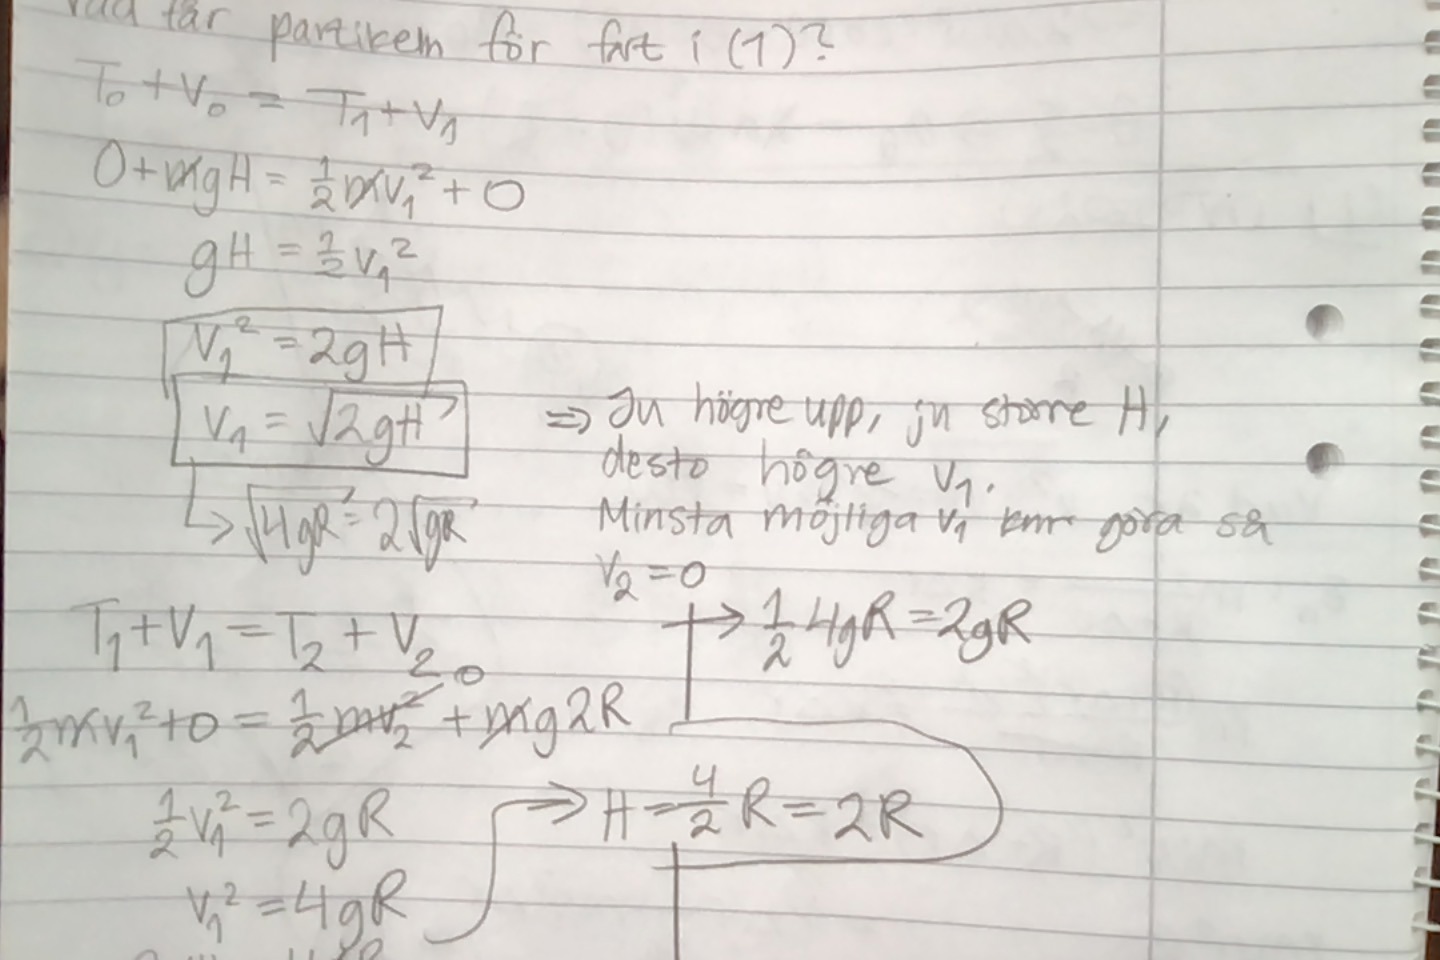 får partikeln för fart i (1)?
T₀ + V₀ = T₁ + V₁
0 + mgH = ½mv₁² + 0
gH = ½v₁²
v₁² = 2gH
v₁ = √2gH
↳ √4gR = 2√gR
⇒ Ju högre upp, ju större H,
desto högre v₁.
Minsta möjliga v₁ göra så
v₂ = 0
→ ½ 4gR = 2gR
T₁ + V₁ = T₂ + V₂
½mv₁² + 0 = ½mv₂² 0 + mg2R
½v₁² = 2gR
v₁² = 4gR
⇒ H = 4/2 R = 2R